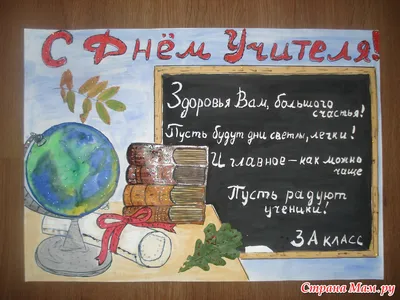 С Днём Учителя!
Здоровья Вам, большого
счастья!
Пусть будут дни светлы, легки!
И главное – как можно
чаще
Пусть радуют
ученики!
3А класс
Страна Мам.ру